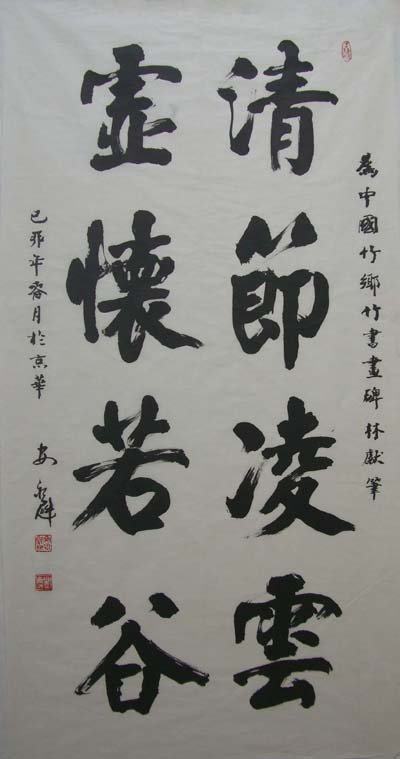 為中國竹鄉竹書畫碑林獻筆
清節凌雲
虛懷若谷
己卯年月於京華